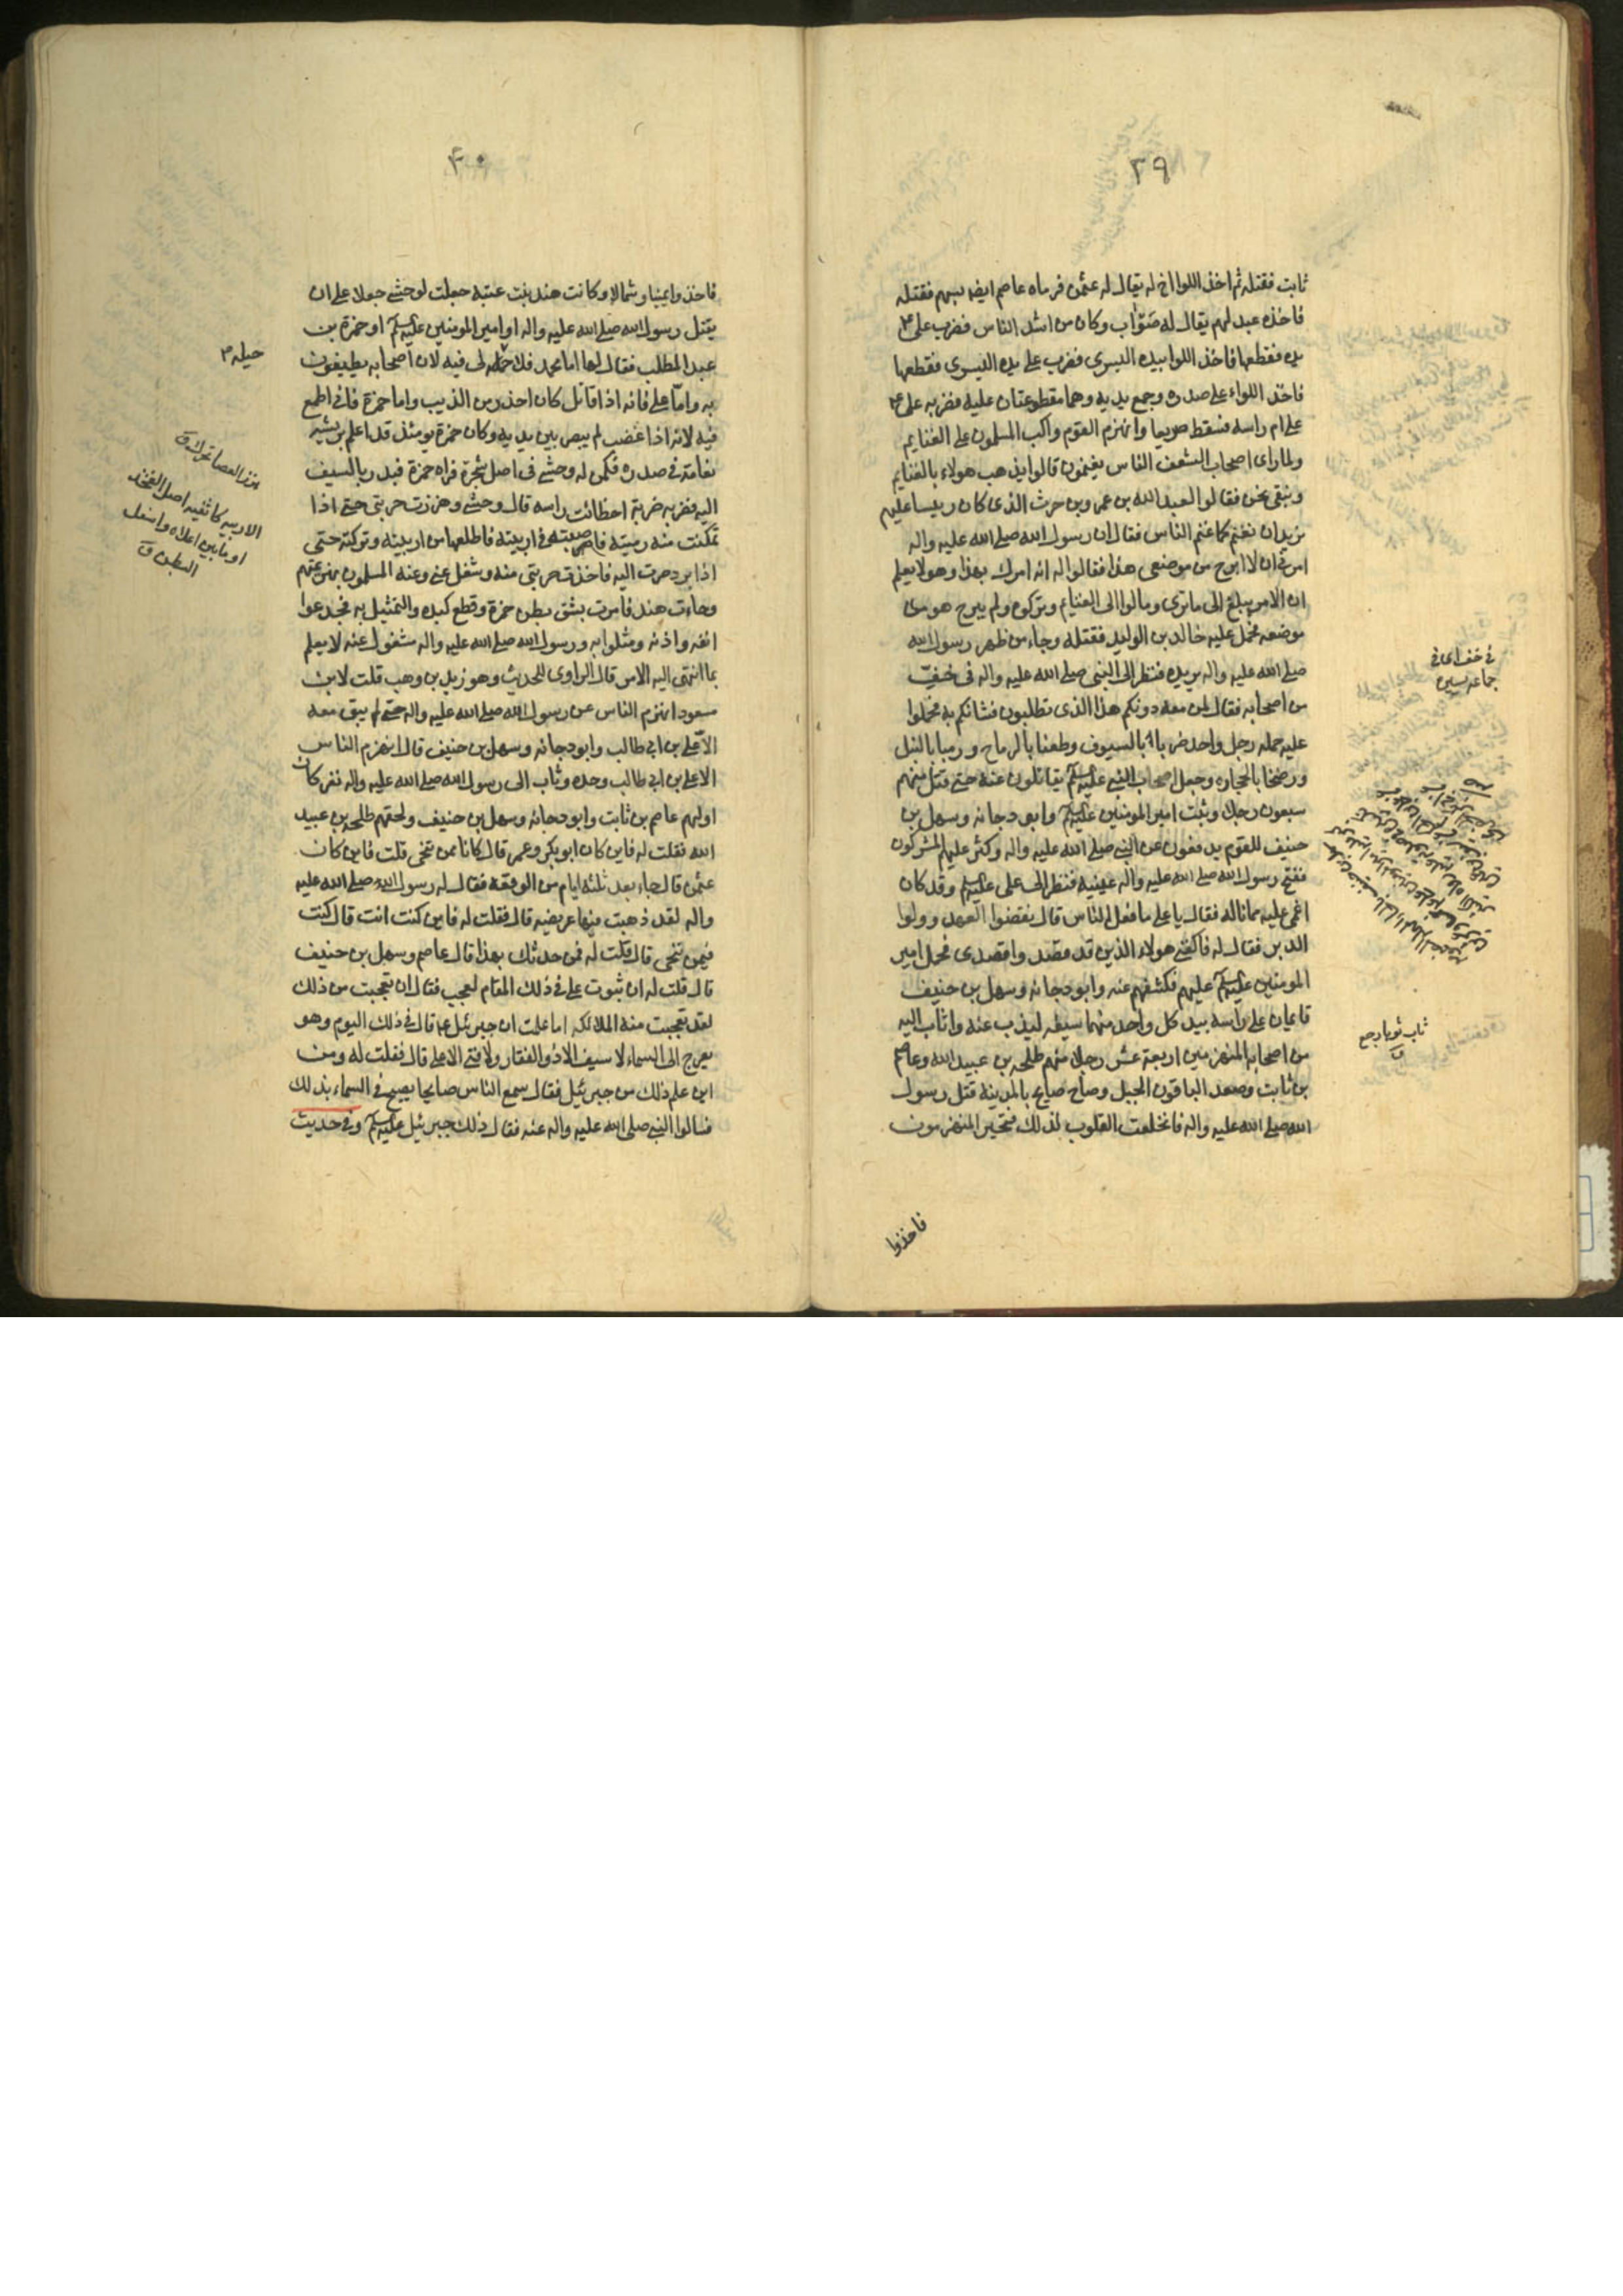 ٣٩
ثابت فقتله ثم اخذ اللوا اخ له يقال له عثمن فرماه عاصم ايضا بسهم فقتله
فاخذه عبد لهم يقال له صَوّاب وكان من اشد الناس فضرب على ع
يده فقطعها فاخذ اللوا بيده اليسرى فضرب على يده اليسرى فقطعها
فاخذ اللواء على صدره وجمع يديه وهما مقطوعتان عليه فضربه على ع
على ام راسه فسقط صريعا وانهزم القوم واكب المسلمون على الغنايم
ولما راى اصحاب الشعف الناس يغنمون قالوا يذهب هولاء بالغنايم
ونبقى نحن فقالوا لعبد الله بن عمرو بن حرث الذى كان رييسا عليهم
نريد ان نغنم كما غنم الناس فقال ان رسول الله صلى الله عليه واله
امرنى ان لا ابرح من موضعى هذا فقالوا له انه امرك بهذا وهو لا يعلم
ان الامر يبلغ الى ما ترى ومالوا الى الغنايم وتركوه ولم يبرح هو من
موضعه فحمل عليه خالد بن الوليد فقتله وجاء من ظهر رسول الله
صلى الله عليه واله يريده فنظر الى النبى صلى الله عليه واله فى خفّ
من اصحابه فقال لمن معه دونكم هذا الذى تطلبون فشانكم به فحملوا
عليه حملة رجل واحد ضربا بالسيوف وطعنا بالرماح ورميا بالنبل
ورضخا بالحجاره وجعل اصحاب النبى عليه السلم يقاتلون عنه حتى قتل منهم
سبعون رجلا وثبت امير المومنين عليه السلم وابو دجانه وسهل بن
حنيف للقوم يدفعون عن النبى صلى الله عليه واله وكثر عليهم المشركون
ففتح رسول الله صلى الله عليه واله عينيه فنظر الى على عليه السلم وقد كان
اغمى عليه مما ناله فقال يا على ما فعل الناس قال نقضوا العهد وولوا
الدبر فقال له فاكفنى هولاء الذين قد قصدوا قصدى فحمل امير
المومنين عليه السلم عليهم فكشفهم عنه وابو دجانه وسهل بن حنيف
قايمان على راسه بيد كل واحد منهما سيفه ليذب عنه وثاب اليه
من اصحابه المنهزمين اربعة عشر رجلا منهم طلحه بن عبيد الله وعاصم
بن ثابت وصعد الباقون الجبل وصاح صايح بالمدينة قتل رسول
الله صلى الله عليه واله فانخلعت القلوب لذلك فتحير المنهزمون
فاخذوا
فى خف اى فى
جماعه يسيره
ثاب ثوبا رجع
ق
٤٠
فاخذوا يمينا وشمالا وكانت هند بنت عتبه جعلت لوحشى جعلا على ان
يقتل رسول الله صلى الله عليه واله او امير المومنين عليه السلم او حمزة بن
عبد المطلب فقال لها اما محمد فلا حيلة لى فيه لان اصحابه يطيفون
به واما على فانه اذا قاتل كان احذر من الذيب واما حمزة فانى اطمع
فيه لانه اذا غضب لم يبصر بين يديه وكان حمزة يومئذ قد اعلم بريشة
نعامة فى صدره فكمن له وحشى فى اصل شجرة فراه حمزة فبدر بالسيف
اليه فضربه ضربة اخطات راسه قال وحشى وهززت حربتى حتى اذا
تمكنت منه رميته فاصبته فى اربيته فاطلعها من اربيته وتركته حتى
اذا برد صرت اليه فاخذت حربتى منه وشغل عنى وعنه المسلمون بهزيمتهم
وجاءت هند فامرت بشق بطن حمزة وقطع كبده والتمثيل به فجدعوا
انفه واذنه ومثلوا به ورسول الله صلى الله عليه واله مشغول عنه لا يعلم
بما انتهى اليه الامر قال الراوى للحديث وهو زيد بن وهب قلت لابن
مسعود انهزم الناس عن رسول الله صلى الله عليه واله حتى لم يبق معه
الا على بن ابى طالب وابو دجانه وسهل بن حنيف قال انهزم الناس
الا على بن ابى طالب وحده وثاب الى رسول الله صلى الله عليه واله نفر كان
اولهم عاصم بن ثابت وابو دجانه وسهل بن حنيف ولحقهم طلحه بن عبيد
الله فقلت له فاين كان ابو بكر وعمر قال كانا ممن تنحى قلت فاين كان
عثمن قال جاء بعد ثلثه ايام من الوقعة فقال له رسول الله صلى الله عليه
واله لقد ذهبت فيها عريضه قال فقلت له فاين كنت انت قال كنت
فيمن تنحى قال قلت له فمن حدثك بهذا قال عاصم وسهل بن حنيف
قال قلت له ان ثبوت على فى ذلك المقام لعجب فقال ان تعجبت من ذلك
لقد تعجبت منه الملائكه اما علمت ان جبرئيل ع قال فى ذلك اليوم وهو
يعرج الى السماء لا سيف الا ذو الفقار ولا فتى الا على قال فقلت له ومن
اين علم ذلك من جبرئيل فقال سمع الناس صايحا يصيح فى السماء بذلك
فسالوا النبى صلى الله عليه واله عنه فقال ذلك جبرئيل عليه السلم وفى حديث
حيله م
هزز العصا تحرك ق
الاربيه كاثفيه اصل الفخذ
او ما بين اعلاه واسفل
البطن ق